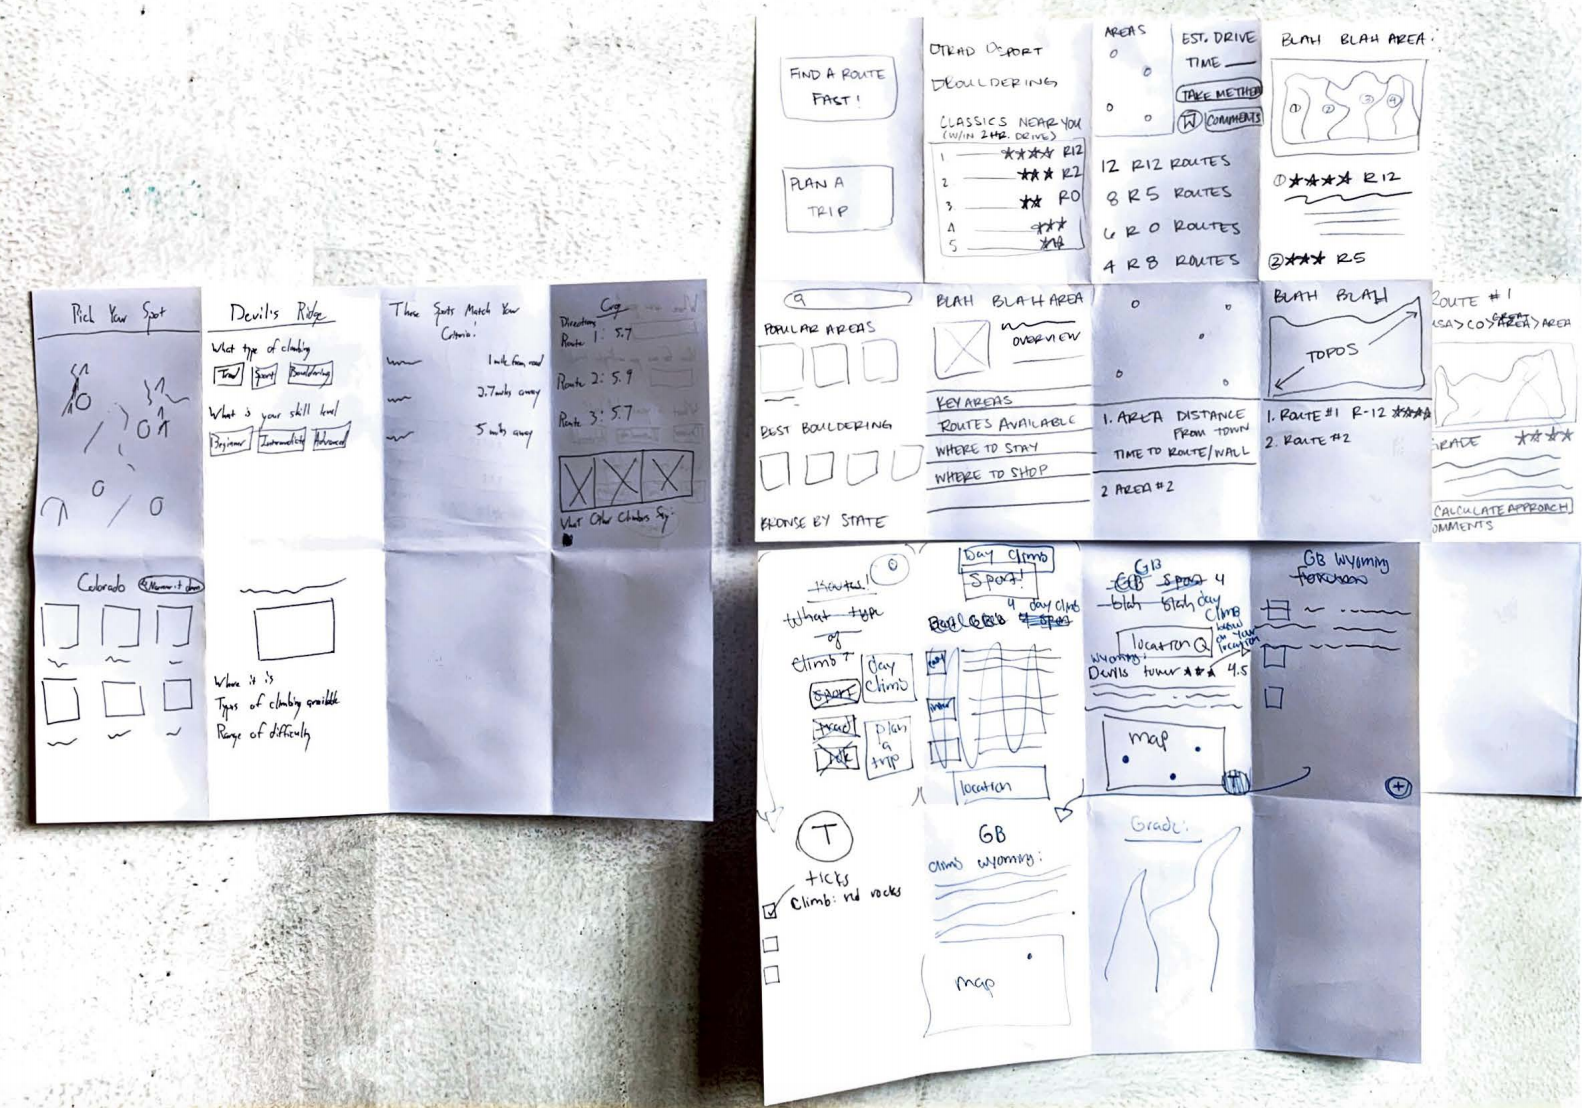 Pick Your Spot
Devil's Ridge
What type of climbing
Trad
Sport
Bouldering
What is your skill level
Beginner
Intermediate
Advanced
These Spots Match Your
Criteria!
1 mile from road
2.7 miles away
5 miles away
Crag
Directions
Route 1: 5.7
Route 2: 5.9
Route 3: 5.7
What Other Climbers Say:
Colorado
Narrow it down
Where it is
Types of climbing available
Range of difficulty
FIND A ROUTE
FAST!
PLAN A
TRIP
TRAD
SPORT
BOULDERING
CLASSICS NEAR YOU
(W/IN 2HR. DRIVE)
1 R12
2 R2
3 R0
4
5
AREAS
EST. DRIVE
TIME
TAKE ME THERE
W
COMMENTS
12 R12 ROUTES
8 R5 ROUTES
6 R0 ROUTES
4 R8 ROUTES
BLAH BLAH AREA
1 2 3 4
1 R12
2 R5
POPULAR AREAS
BEST BOULDERING
BROWSE BY STATE
BLAH BLAH AREA
OVERVIEW
KEY AREAS
ROUTES AVAILABLE
WHERE TO STAY
WHERE TO SHOP
1. AREA DISTANCE
FROM TOWN
TIME TO ROUTE/WALL
2 AREA #2
BLAH BLAH
TOPOS
1. ROUTE #1 R-12
2. ROUTE #2
ROUTE #1
USA > CO > GREAT AREA > AREA
GRADE
CALCULATE APPROACH
COMMENTS
What type
of
Climb?
Sport
trad
day
climb
plan
a
trip
Day Climb
Sport!
4 day climb
location
GB
GB Sport 4
blah blah day
Climb
based
on your
location
location
Wyoming:
Devils tower 4.5
map
T
GB Wyoming
+
T
ticks
Climb: red rocks
GB
climb wyoming:
map
Grade: